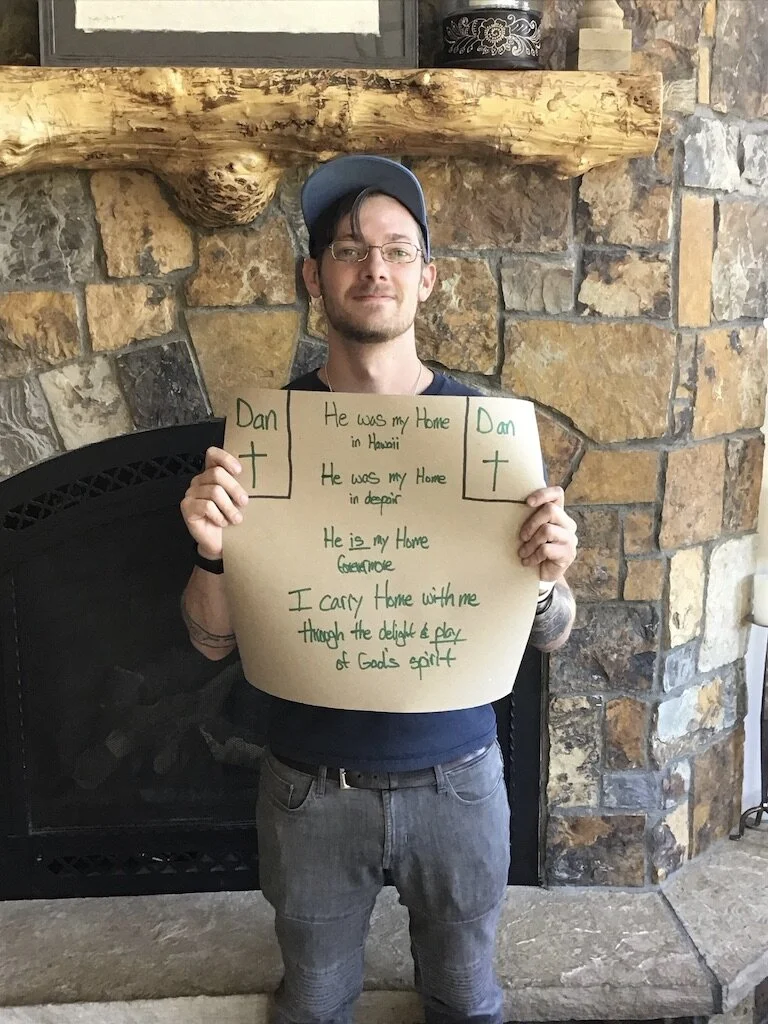 Dan
He was my Home
in Hawaii
He was my Home
in despair
He is my Home
forevermore
I carry Home with me
through the delight & play
of God's spirit
Dan